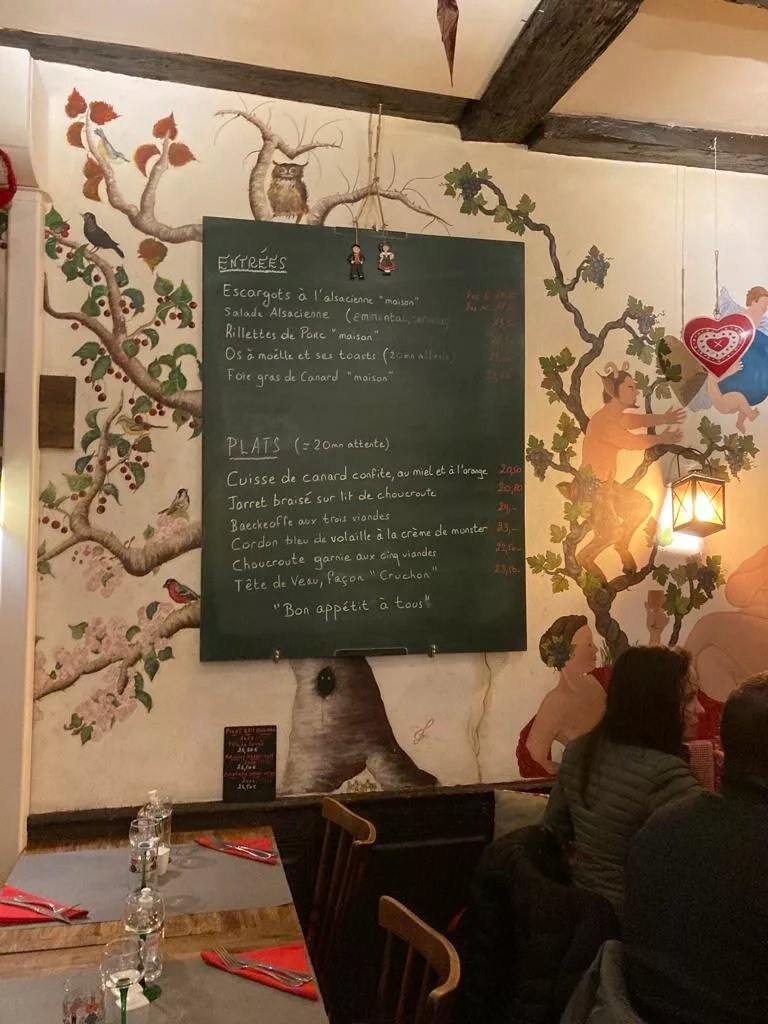 ENTRÉES
Escargots à l'alsacienne "maison"
Salade Alsacienne (emmental, cervelas)
Rillettes de Porc "maison"
Os à moëlle et ses toasts (20mn attente)
Foie gras de Canard "maison"
PLATS (≈ 20mn attente)
Cuisse de canard confite, au miel et à l'orange 20,50
Jarret braisé sur lit de choucroute 20,80
Baeckeoffe aux trois viandes 24,-
Cordon bleu de volaille à la crème de munster 23,-
Choucroute garnie aux cinq viandes 22,50
Tête de Veau, façon "Cruchon" 23,50
"Bon appétit à tous"